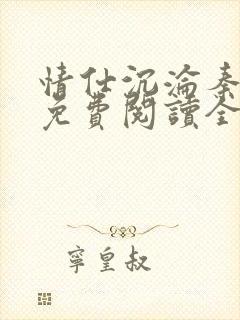 情仕沉淪秦
免費閱讀全
寧皇叔